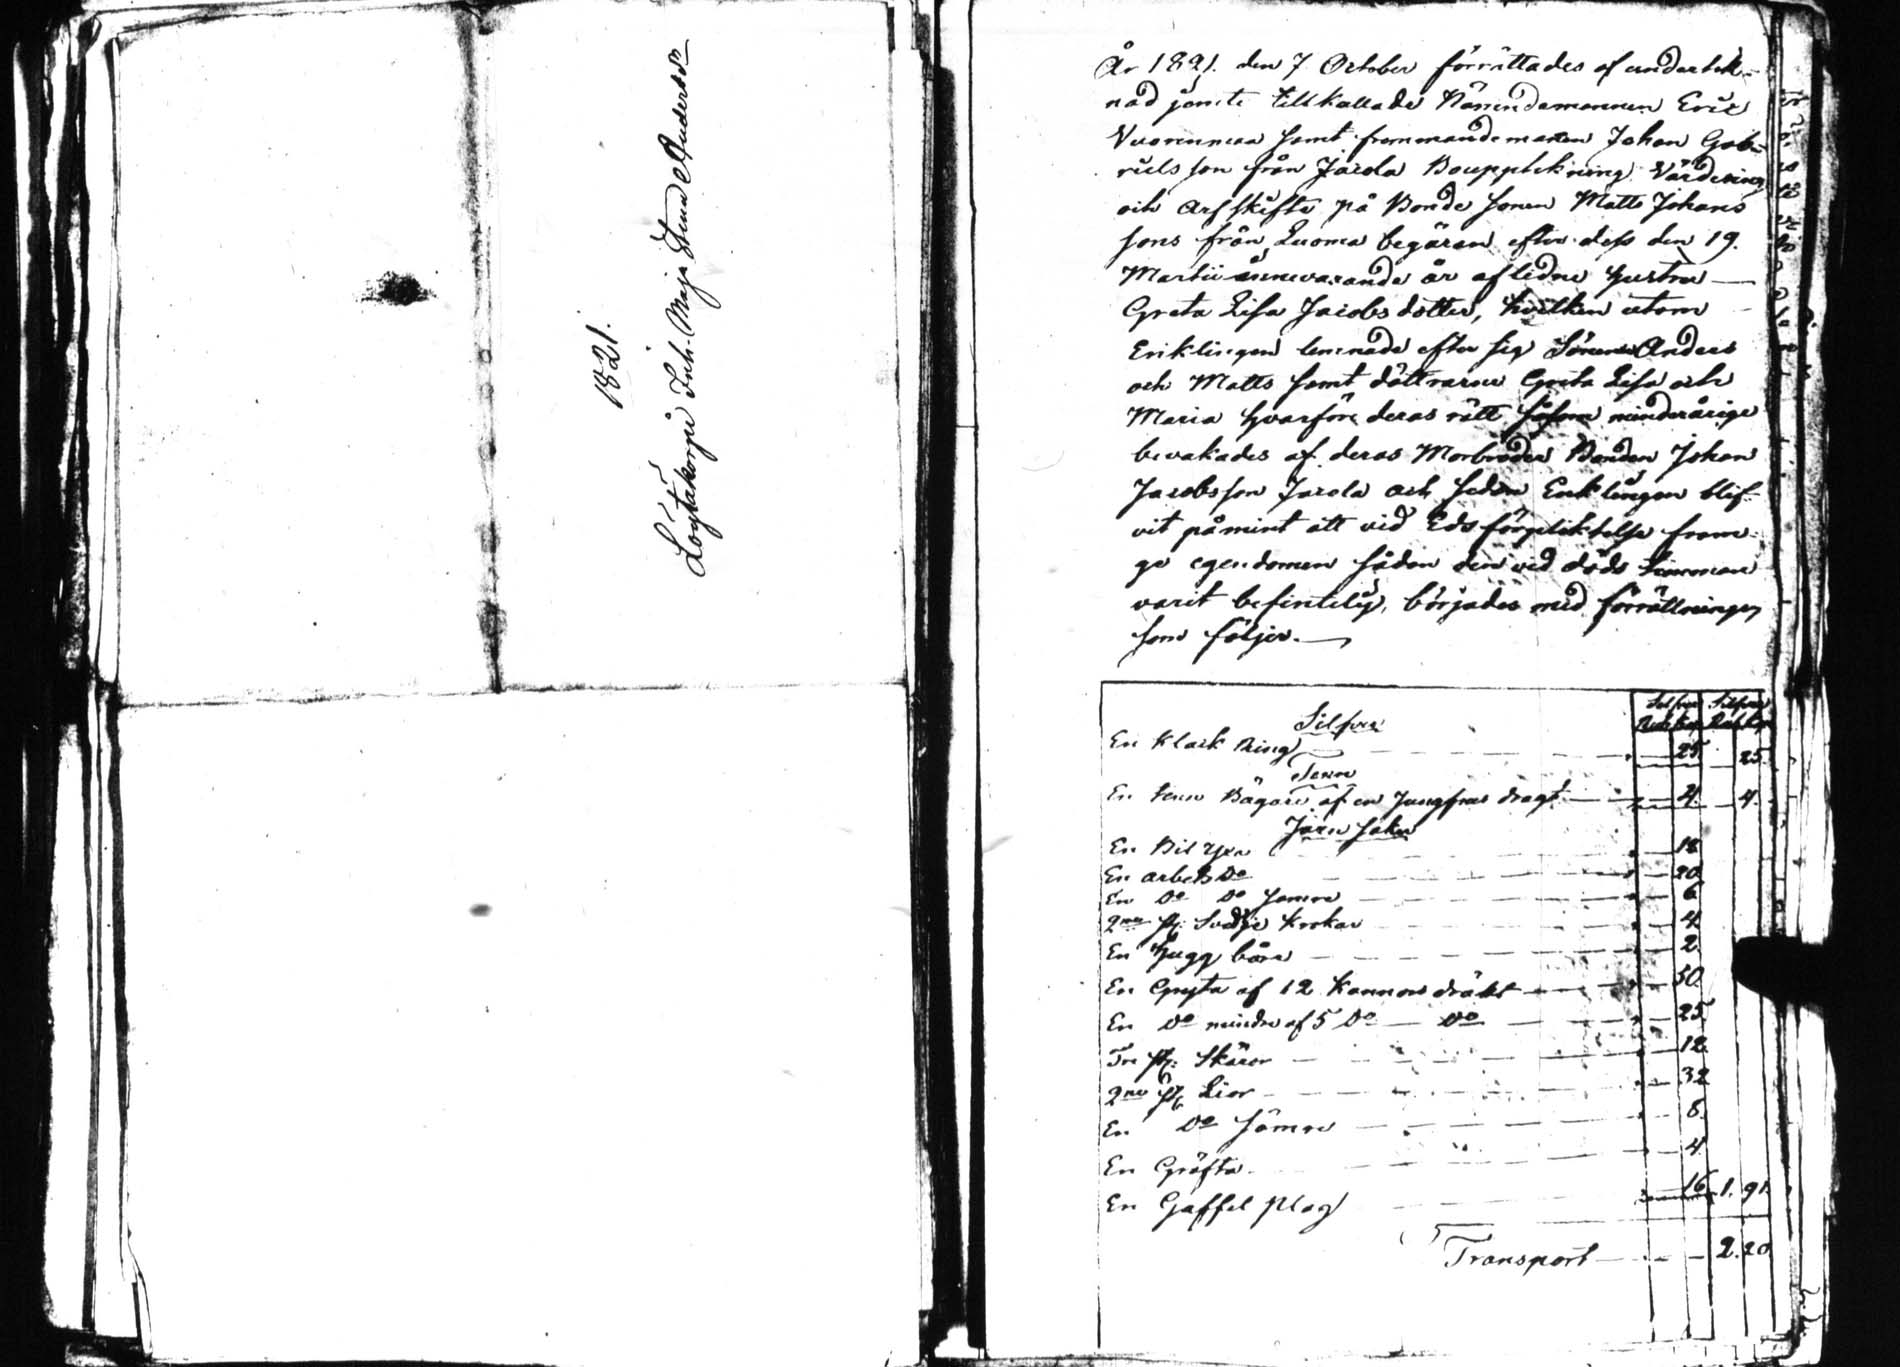 1821.
Löytäkorpi Inh. Maja Stina Andersd:r
År 1821. den 7 October förrättades af undertek-
nad jemte tillkallade Nämndemannen Eric
Vuorenmaa samt fremmandemannen Johan Gab-
rielsson från Jacola Bouppteckning Värdering
och Arfskifte på Bonde sonen Matts Johans
sons från Luoma begäran efter dess den 19.
Martii innevarande år aflidne hustru
Greta Lisa Jacobsdotter, hvilken utom
Enklingen lemnade efter sig Sönerne Anders
och Matts samt döttrarne Greta Lisa och
Maria hvarföre deras rätt såsom minderårige
bevakades af deras Morbroder Bonden Johan
Jacobsson Jacola och sedan Enklingen blif-
vit påmint att vid Eds förpliktelse fram-
ge egendomen sådan den vid döds timman
varit befintelig, börjades med förrättningen
som följer.
Silfver Silfver
Rub. Kop. Rub. Kop.
Silfver
En Klack Ring 25. 25.
Tenn
En tenn Bägare af en Jungfrus dragt 4. 4.
Jern saker
En Bil Yxa 12
En arbets D:o 20
En D:o D:o sämre 6
2:ne st. Svedje Krokar 4
En hugg 2
En Gryta af 12 Kannors dräkt 50
En D:o mindre af 5 D:o D:o 25
Tre st. Skäror 12
2:ne st. Lior 32
En D:o sämre 8.
En Gräfta 4
En Gaffel Plog 16 1. 91.
Transport 2. 20.